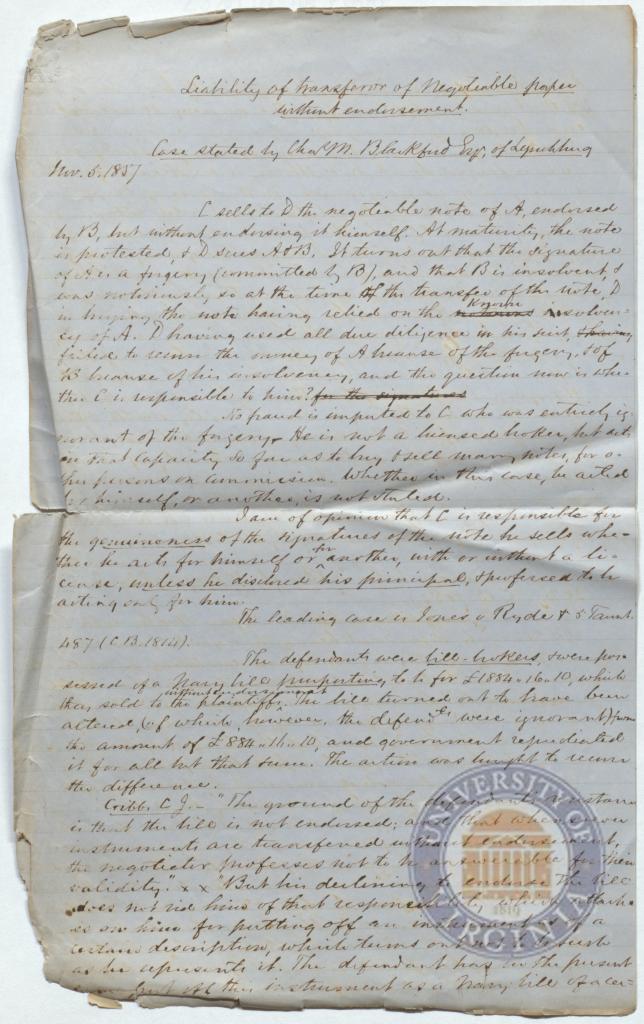 Liability of transferor of Negotiable paper
without endorsement.
Case stated by Chas M. Blackford Esqr, of Lynchburg
Nov. 5. 1857
C sells to D the negotiable note of A, endorsed
by B, but without endorsing it himself. At maturity, the note
is protested, & D sues A & B. It turns out that the signature
of A is a forgery (committed by B), and that B is insolvent, &
was notoriously so at the time of the transfer of the note, D
in buying the note having relied on the known solven-
cy of A. D having used all due diligence in his suit,
failed to recover the money of A because of the forgery, & of
B because of his insolvency, and the question now is whe-
ther C is responsible to him? for the signatures
No fraud is imputed to C who was entirely ig-
norant of the forgery. He is not a licensed broker, but acts
in that capacity so far as to buy & sell many notes, for o-
ther persons on commission. Whether in this case, he acted
for himself, or another, is not stated.
I am of opinion that C is responsible for
the genuineness of the signatures of the note he sells whe-
ther he acts for himself or for another, with or without a li-
cense, unless he disclosed his principal, & professed to be
acting only for him.
The leading case is Jones v Ryde & 5 Taunt.
487 (C.B. 1814).
The defendants were bill-brokers, & were pos-
sessed of a Navy bill purporting to be for £1884.16.10, which
they sold to the plaintiffs without endorsement. The bill turned out to have been
altered, (of which, however, the defend'ts were ignorant) from
the amount of £884.16.10, and government repudiated
it for all but that sum. The action was brought to recover
the difference.
Gibbs C.J. - "The ground of the defendants resistance
is that the bill is not endorsed; and that whensoever
instruments are transferred without endorsement,
the negotiator professes not to be answerable for their
validity. x x But his declining to endorse the bill
does not rid him of that responsibility which attach-
es on him for putting off an instrument as of a
certain description, which turns out not to be such
as he represents it. The defendant has in the present
case put off this instrument as a Navy bill of a cer-
UNIVERSITY OF VIRGINIA
1819